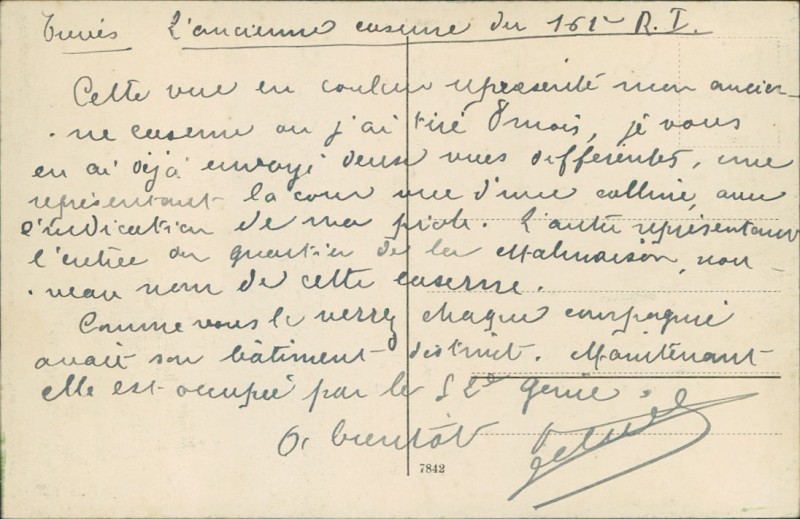 Trèves L'ancienne caserne du 161e R. I.
Cette vue en couleur représente mon ancien-
-ne caserne ou j'ai tiré 8 mois, je vous
en ai déjà envoyé deux vues différentes, une
représentant la cour vue d'une colline, avec
l'indication de ma piole. L'autre représentant
l'entrée du quartier de la Malmaison, nou-
-veau nom de cette caserne.
Comme vous le verrez chaque compagnie
avait son bâtiment distinct. Maintenant
elle est occupée par le génie.
A bientôt
7842